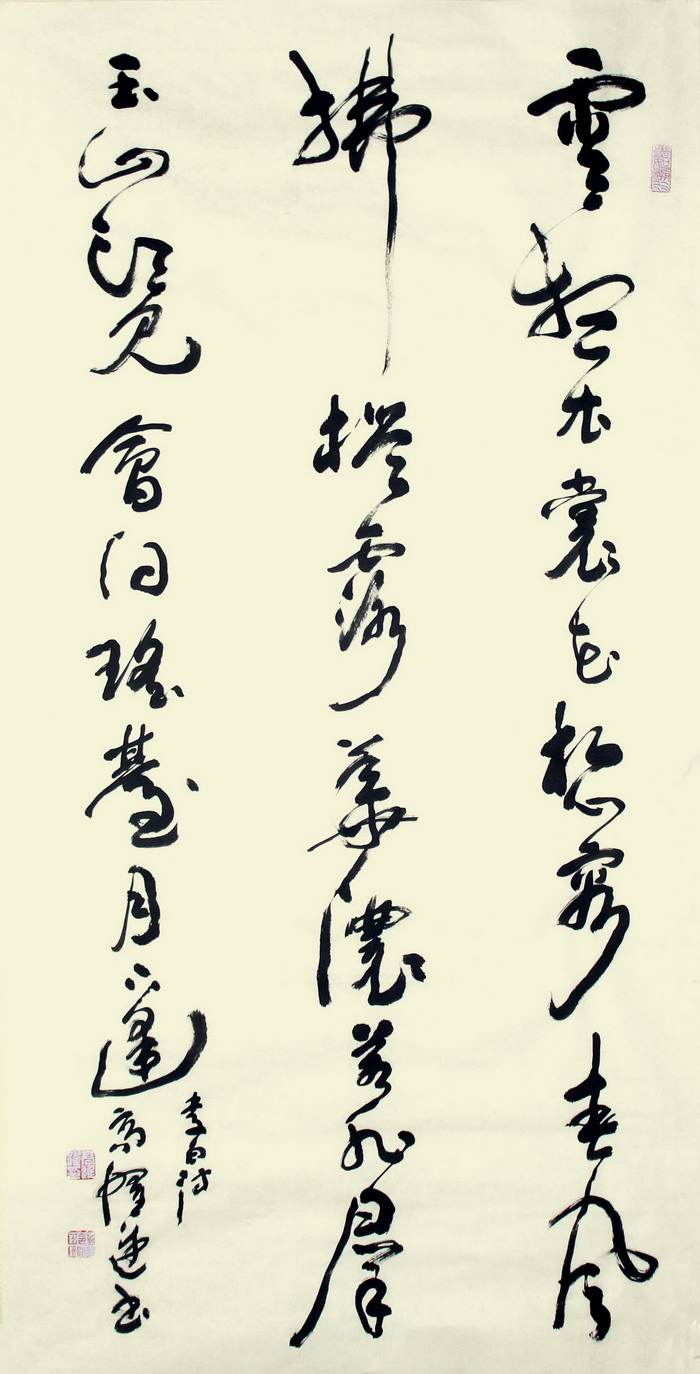 雲想衣裳花想容春風
拂檻露華濃若非羣
玉山頭見會向瑤臺月下逢
李白詩
高 書